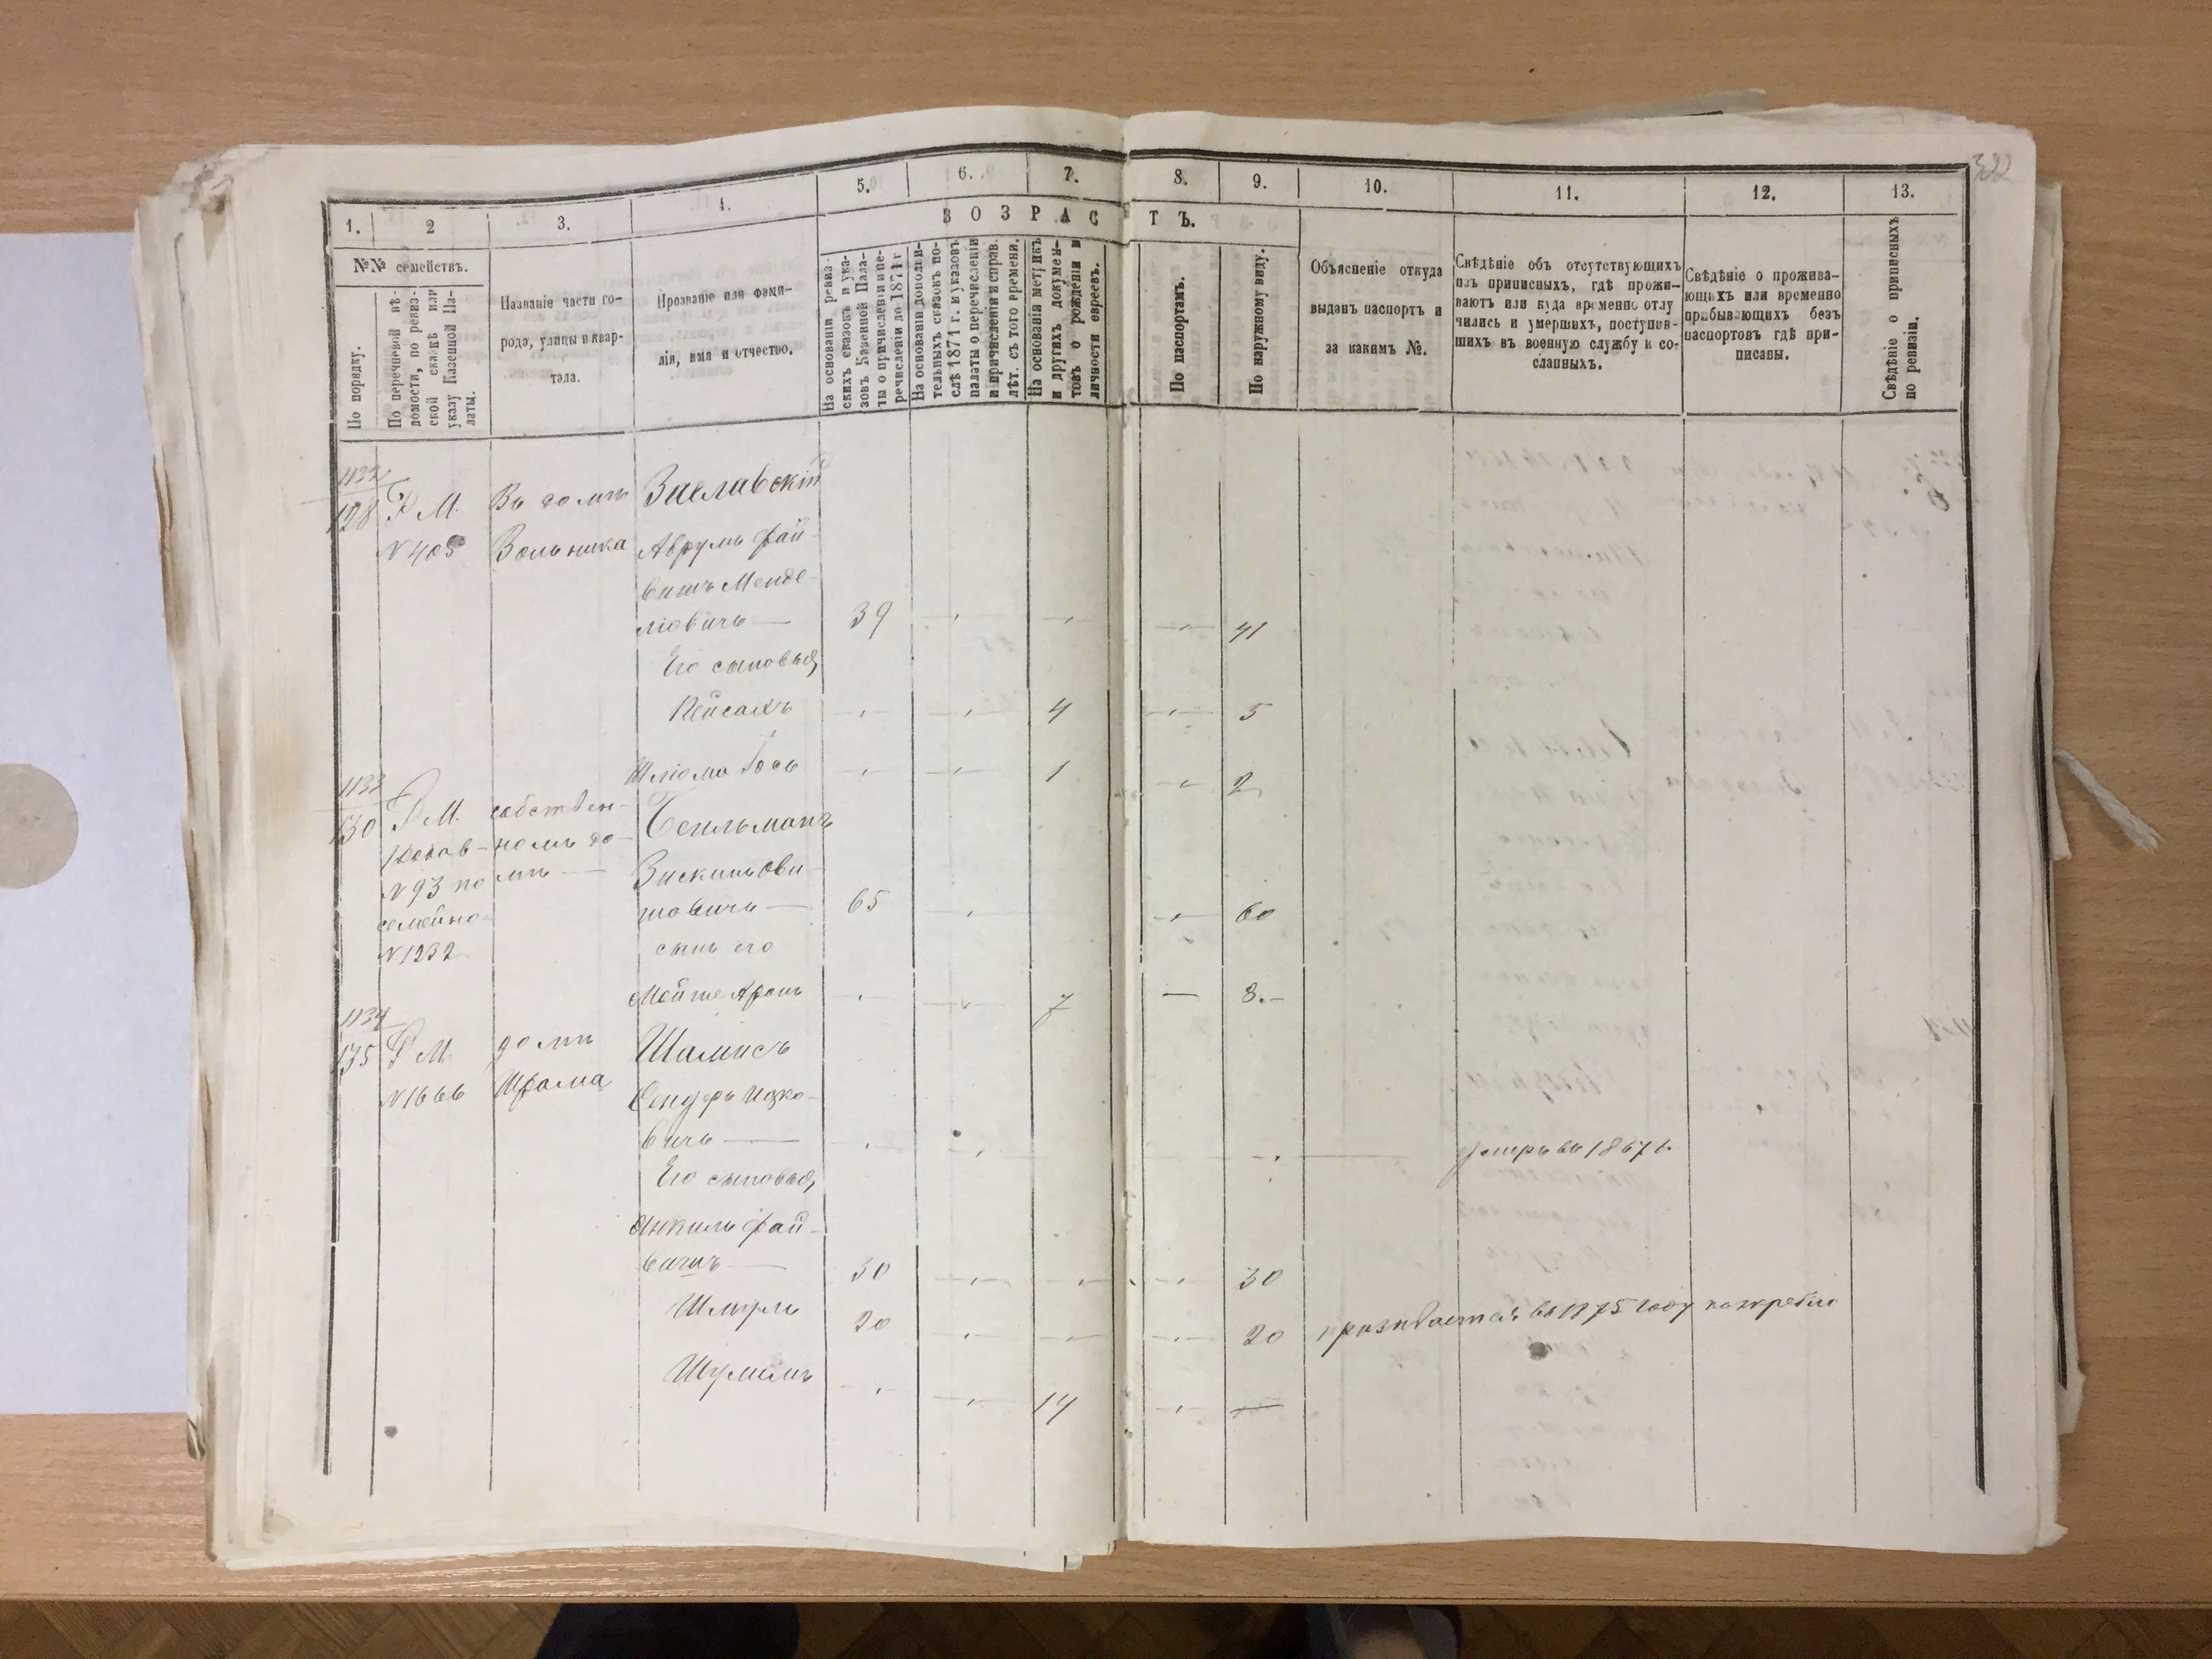 322
1. 2 3. 4. 5. 6. 7. 8. 9. 10. 11. 12. 13.
ВОЗРАСТЪ.
№№ семействъ.
По порядку.
По перечневой вѣ-
домости, по ревиз-
ской сказкѣ или
указу Казенной Па-
латы.
Названіе части го-
рода, улицы и квар-
тала.
Прозваніе или фами-
лія, имя и отчество.
На основаніи ревиз-
скихъ сказокъ и ука-
зовъ Казенной Пала-
ты о причисленіи и пе-
речисленіи до 1871 г
На основаніи дополни-
тельныхъ сказокъ по-
слѣ 1871 г. и указовъ
палаты о перечисленіи
и причисленіи и справ.
лѣт. съ того времени.
На основаніи метрикъ
и другихъ докумен-
товъ о рожденіи и
личности евреевъ.
По паспортамъ.
По наружному виду.
Объясненіе откуда
выданъ паспортъ и
за какимъ №.
Свѣдѣніе объ отсутствующихъ
изъ приписныхъ, гдѣ прожи-
ваютъ или куда временно отлу
чились и умершихъ, поступив-
шихъ въ военную службу и со-
сланныхъ.
Свѣдѣніе о прожива-
ющихъ или временно
прибывающихъ безъ
паспортовъ гдѣ при-
писаны.
Свѣдѣніе о приписныхъ
по ревизіи.
1132
128 Р М. Въ домѣ Заславскій
№ 405 Вольника Аврумъ Фай-
вишъ Менде-
лювичъ — 39 41
Его сыновья,
Пейсахъ 4 5
Шлюма Іось 1 2
1133
130 Р М. собствен- Сеильманъ
номъ до-
№ 93 по мѣ — Зискинъ Ови-
семейно шовичъ — 65 60
№ 1232 сынъ его
Мойше Аронъ 7 — 8.-
1134
135 Р М. домѣ Шамисъ
№ 1666 Шрама Сендеръ Ицко-
вичъ — умръ въ 1867 г.
Его сыновья,
Янкиль Фай-
вишъ — 30 30
Шмуль 20 20 призывается въ 1875 году по жребію
Шулимъ 14 —